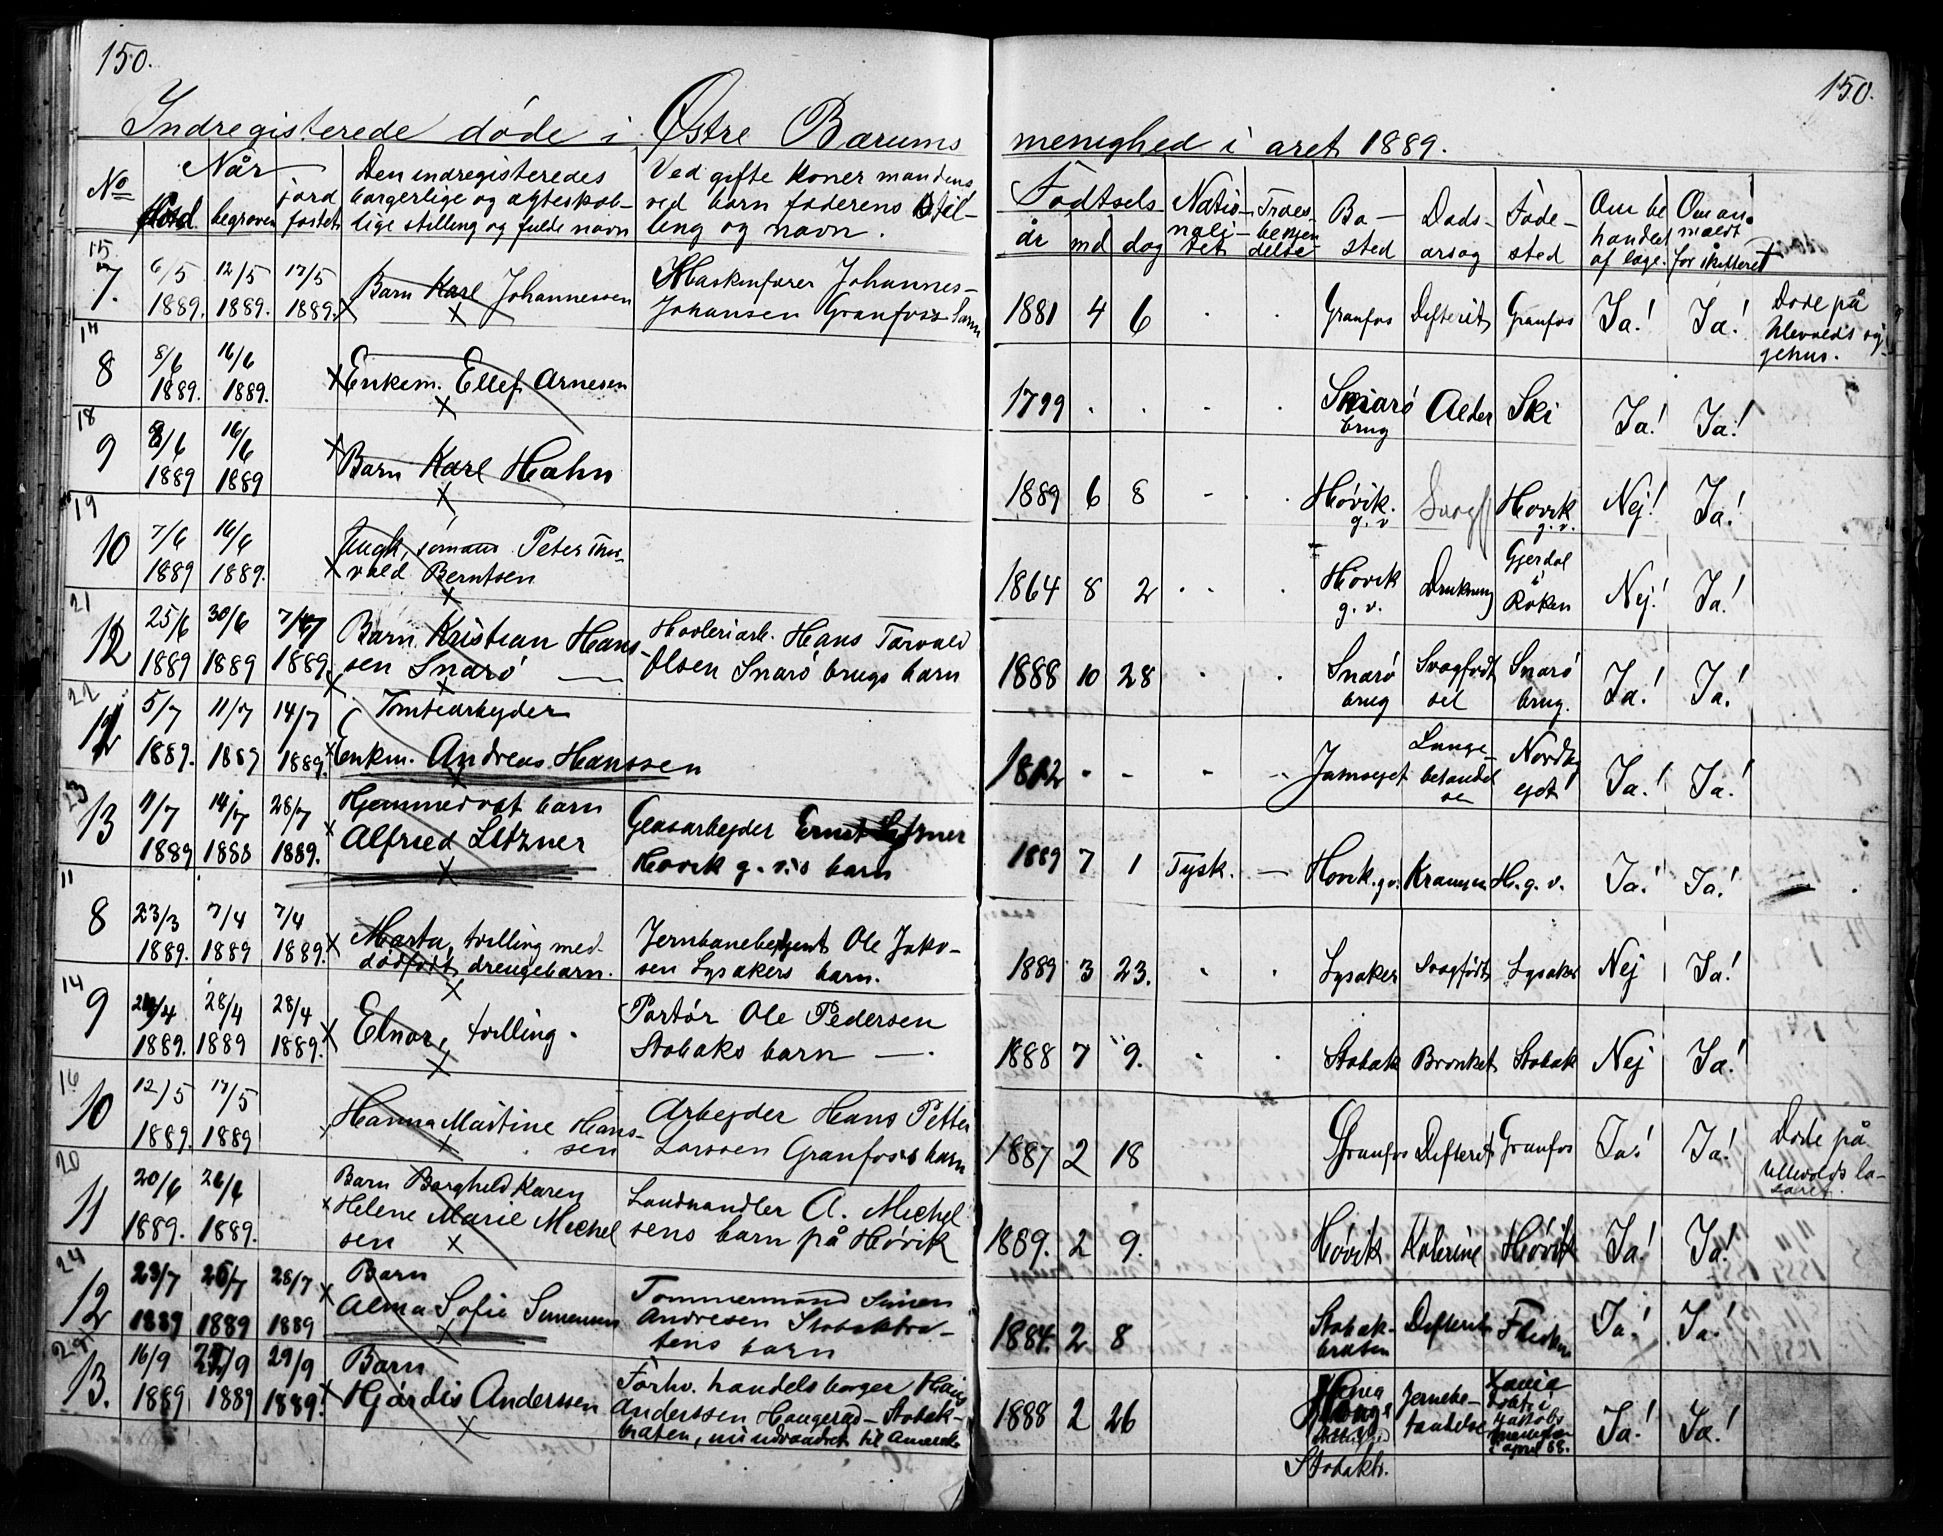 150.
150.
Indregisterede døde i Østre Bærums menighed i året 1889.
No
Når
begraven
jord
fæstet
Den indregisteredes
borgerlige og ægteskab-
lige stilling og fulde navn
Ved gifte koner mandens,
ved barn faderens stil-
ling og navn.
Fødtsels
år md dag
Natio-
nali-
tet
Troes-
bekjen
delse
Bo-
sted
Døds-
årsag
Føde-
sted
Om be
handlet
af læge.
Om an-
mældt
for skifteret
15
7.
6/5 12/5 17/5
1889. 1889. 1889.
Barn Karl Johannessen
Maskinfører Johannes-
Johansen Granfoss barn
1881 4 6 Granfos Defterit Granfos Ja! Ja!
Døde på
Ulevolds syg
gehus.
17
8
8/6 16/6
1889. 1889.
Enkem. Ellef Arnesen
1799 Snarø
brug
Alder Ski Ja! Ja!
18
9
8/6 16/6
1889 1889
Barn Karl Hahn
1889 6 8 Høvik.
g. v
Svag Høvik
g. v.
Nej! Ja!
19
10
7/6 16/6
1889 1889.
Ungk, sømand Peter Thor-
vald Berntsen
1864 8 2 Høvik
g. v.
Drukning
Gjerdal
i
Røken
Nej! Ja!
21
12
25/6 30/6 7/7
1889 1889 1889.
Barn Kristian Hans-
sen Snarø
Høvleriarb. Hans Torvald
Olsen Snarø brugs barn
1888 10 28 Snarø
brug
Svagfødt
sel
Snarø
brug.
Ja! Ja!
22
5/7 11/7 14/7
1889. 1889 1889.
Tomtearbejder
Enkm. Andreas Hanssen
1812 Jamseget
Lunge
betændel
se
Nordby
ejet
Ja! Ja!
23
13
11/7 14/7 28/7
1889 1888 1889.
Hjemmedøbt barn
Alfried Litzner
Glasarbejder Ernst Litzner
Høvik g. v.s barn
1889 7 1 Tysk. Høvik. g.v. Krampe H. g. v. Ja! Ja!
11
8
23/3 7/4 7/4
1889. 1889 1889.
Marta, tvilling med
dødfødt drengebarn.
Jernbanebetjent Ole Jako-
sen Lysakers barn.
1889 3 23. Lysaker Svagfødt Lysaker Nej Ja!
14
9
28/4 28/4
1889. 1889 1889.
Elnor, tvilling.
Portør Ole Pedersen
Stabaks barn
1888 7 9. Stabak Bronket Stabak Nej Ja!
16
10
12/5 17/5
1889. 1889
Hanna Martine Hans-
sen
Arbejder Hans Petter
Larssen Granfoss barn
1887 2 18 Granfos Defterit Granfos Ja! Ja!
Døde på
Ullevolds la-
saret.
20
11
20/6 26/6
1889. 1889.
Barn Borghild Karen
Helene Marie Michel
sen
Landhandler A. Michel
sens barn på Høvik
1889. 2 9. Høvik Kolerine Høvik Ja! Ja!
24
12
23/7 28/7
1889 1889 1889
Barn
Alma Sofie Simensen
Tømmermand Simen
Andresen Stabækbrå-
tens barn
1884. 2 8 Stabak-
bråten
Defterit Ja! Ja!
13.
16/9 29/9
1889 1889 1889.
Barn
Hjørdis Anderssen
Forhv. handelsborger Hans
Anderssen Haugerud-Stabak-
bråten, nu udvandret til Amerika
1888 2 26
Stabakb.
Jernebe-
tændelse
døbt i
Jakobs
menighed
i april 88.
Ja! Ja!